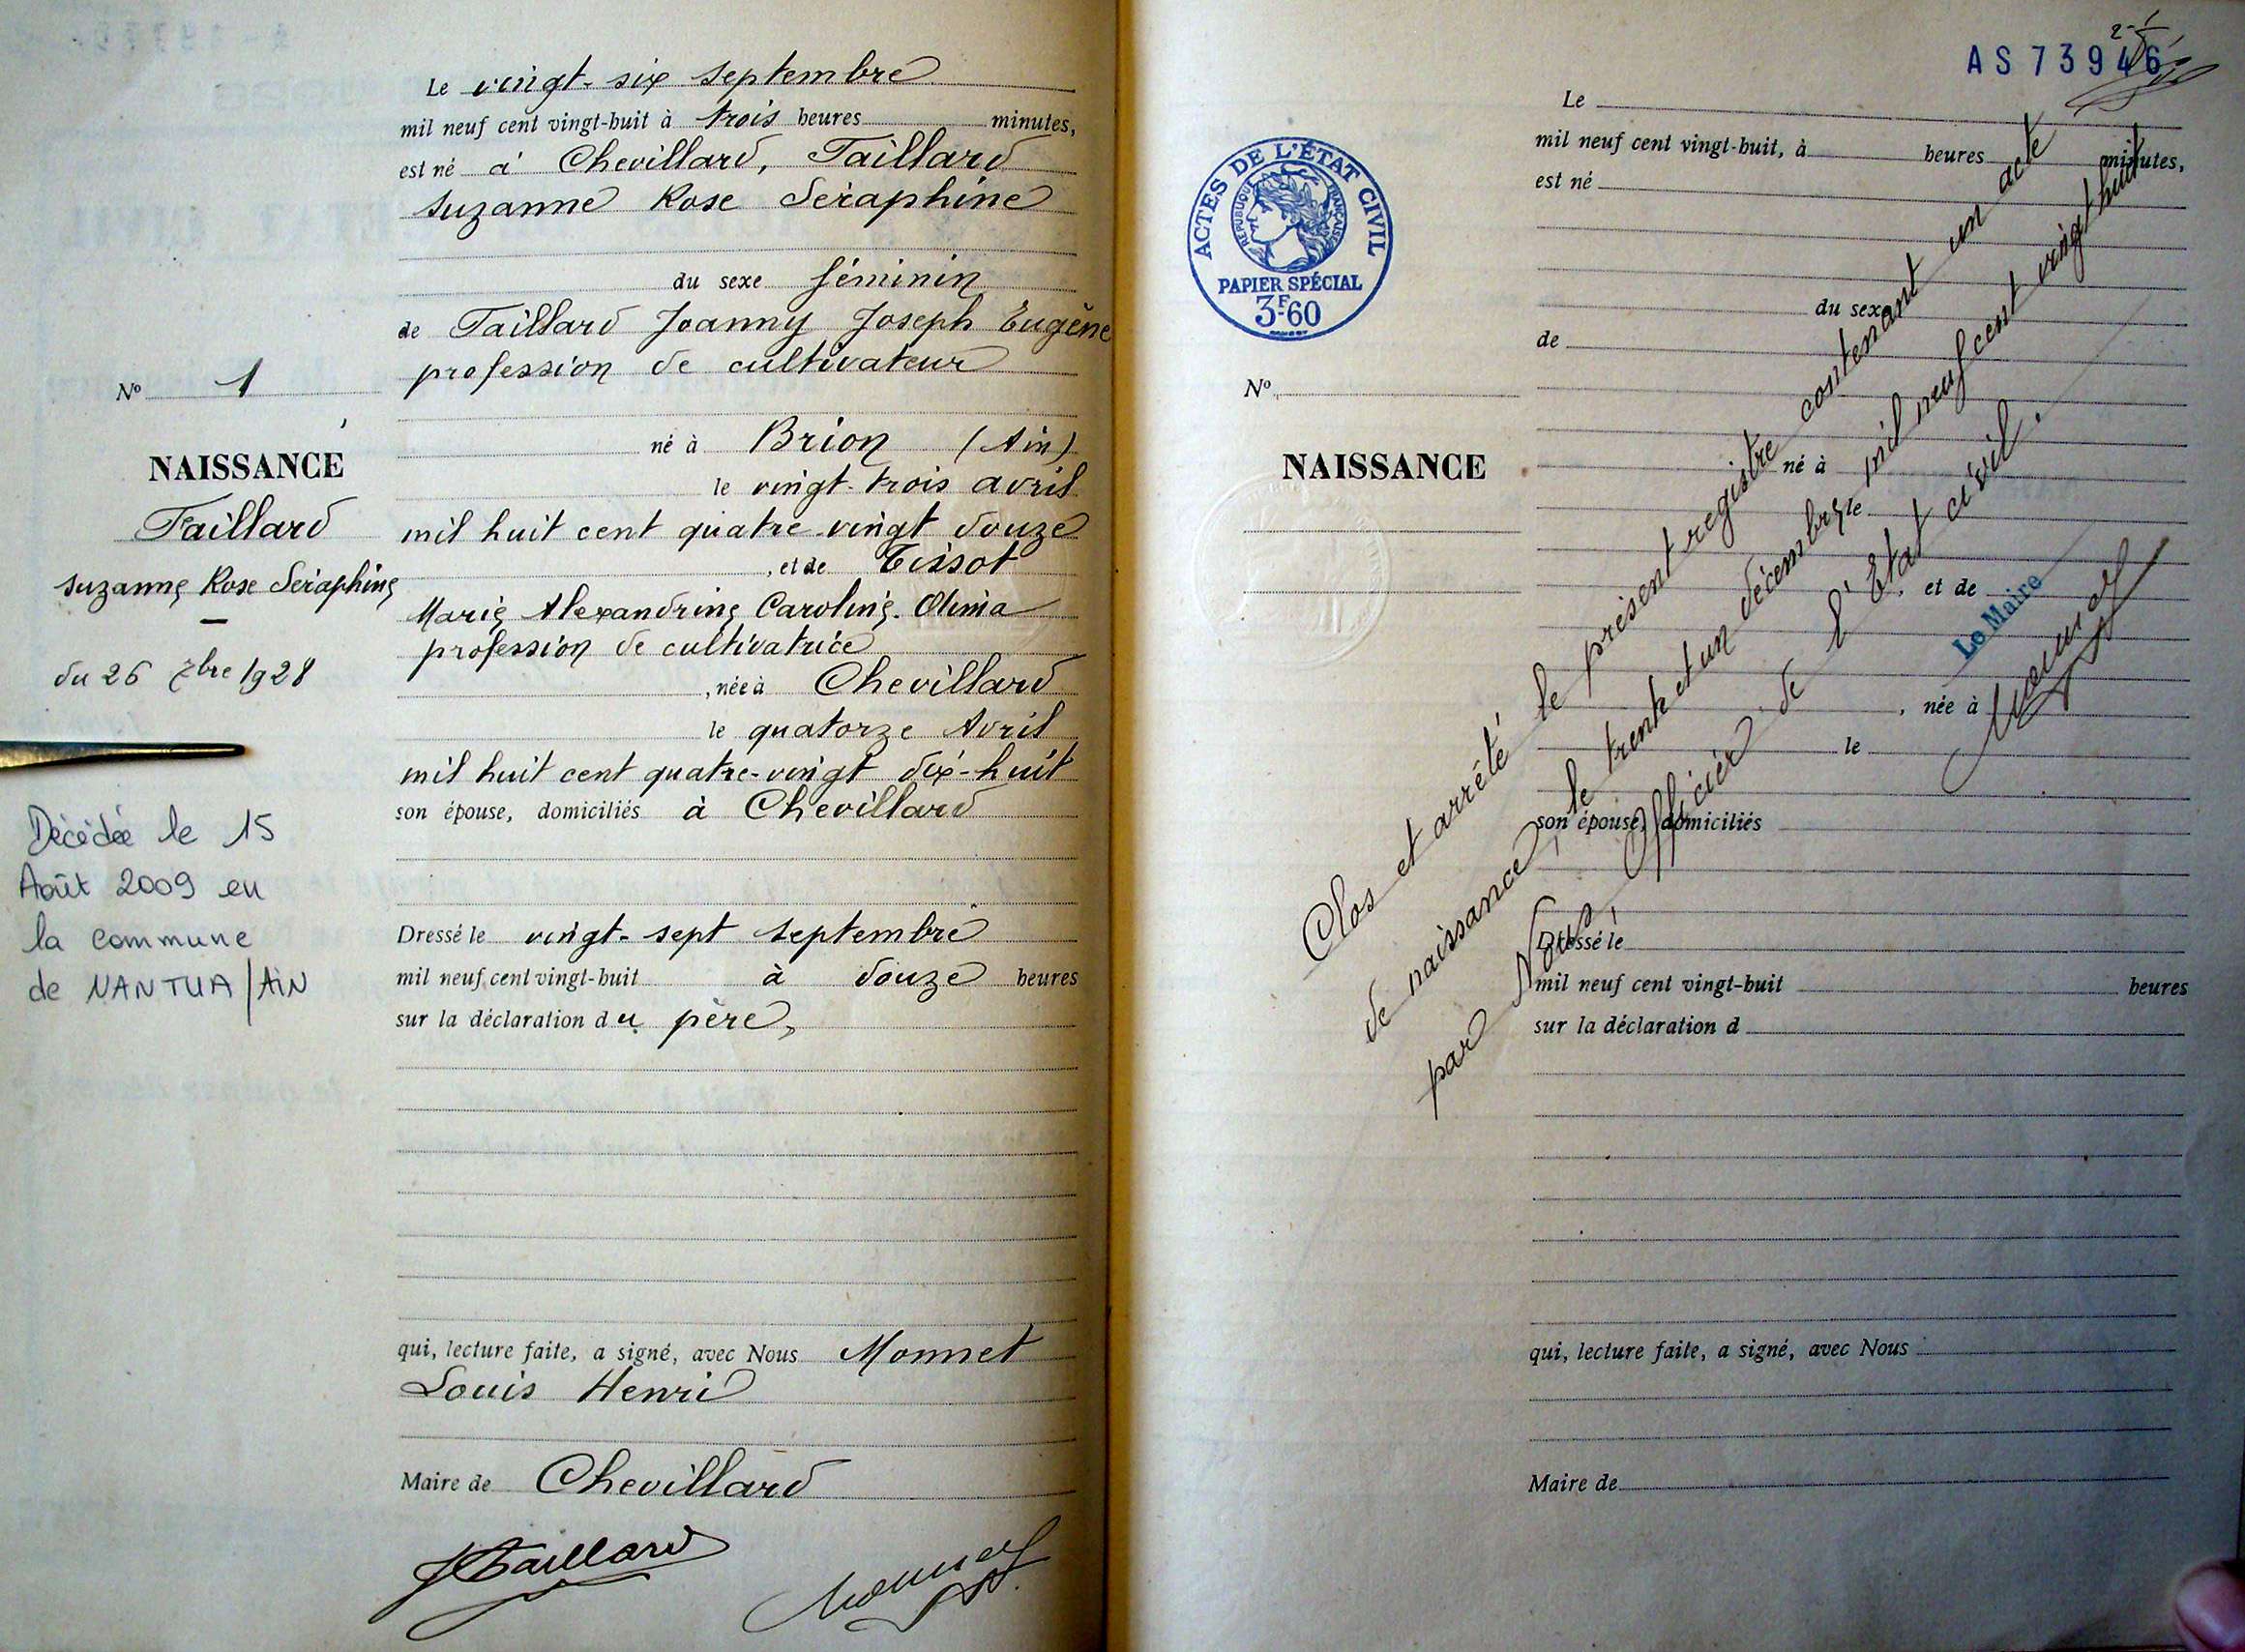 Le vingt-six septembre
mil neuf cent vingt-huit à trois heures minutes,
est né à Chevillard, Taillard
Suzanne Rose Séraphine
du sexe féminin
de Taillard Joanny Joseph Eugène
profession de cultivateur
né à Brion (Ain)
le vingt-trois avril
mil huit cent quatre-vingt douze
, et de Tissot
Marie Alexandrine Caroline
profession de cultivatrice
, née à Chevillard
le quatorze Avril
mil huit cent quatre-vingt dix-huit
son épouse, domiciliés à Chevillard
Dressé le vingt-sept septembre
mil neuf cent vingt-huit à douze heures
sur la déclaration du père,
qui, lecture faite, a signé, avec Nous Monnet
Louis Henri
Maire de Chevillard
JTaillard
Monnet
No 1
NAISSANCE
Taillard
Suzanne Rose Séraphine
du 26 7bre 1928
Décédée le 15
Août 2009 en
la commune
de NANTUA/AIN
AS 73946
ACTES DE L'ÉTAT CIVIL
RÉPUBLIQUE FRANÇAISE
PAPIER SPÉCIAL
3F60
No
NAISSANCE
Le
mil neuf cent vingt-huit, à heures minutes,
est né
du sexe
de
né à
le
, et de
, née à
le
son épouse, domiciliés
Dressé le
mil neuf cent vingt-huit heures
sur la déclaration d
qui, lecture faite, a signé, avec Nous
Maire de
Clos et arrêté le présent registre contenant un acte
de naissance, le trente et un décembre mil neuf cent vingt huit
par Nous, Officier de l'Etat civil.
Le Maire
Monnet